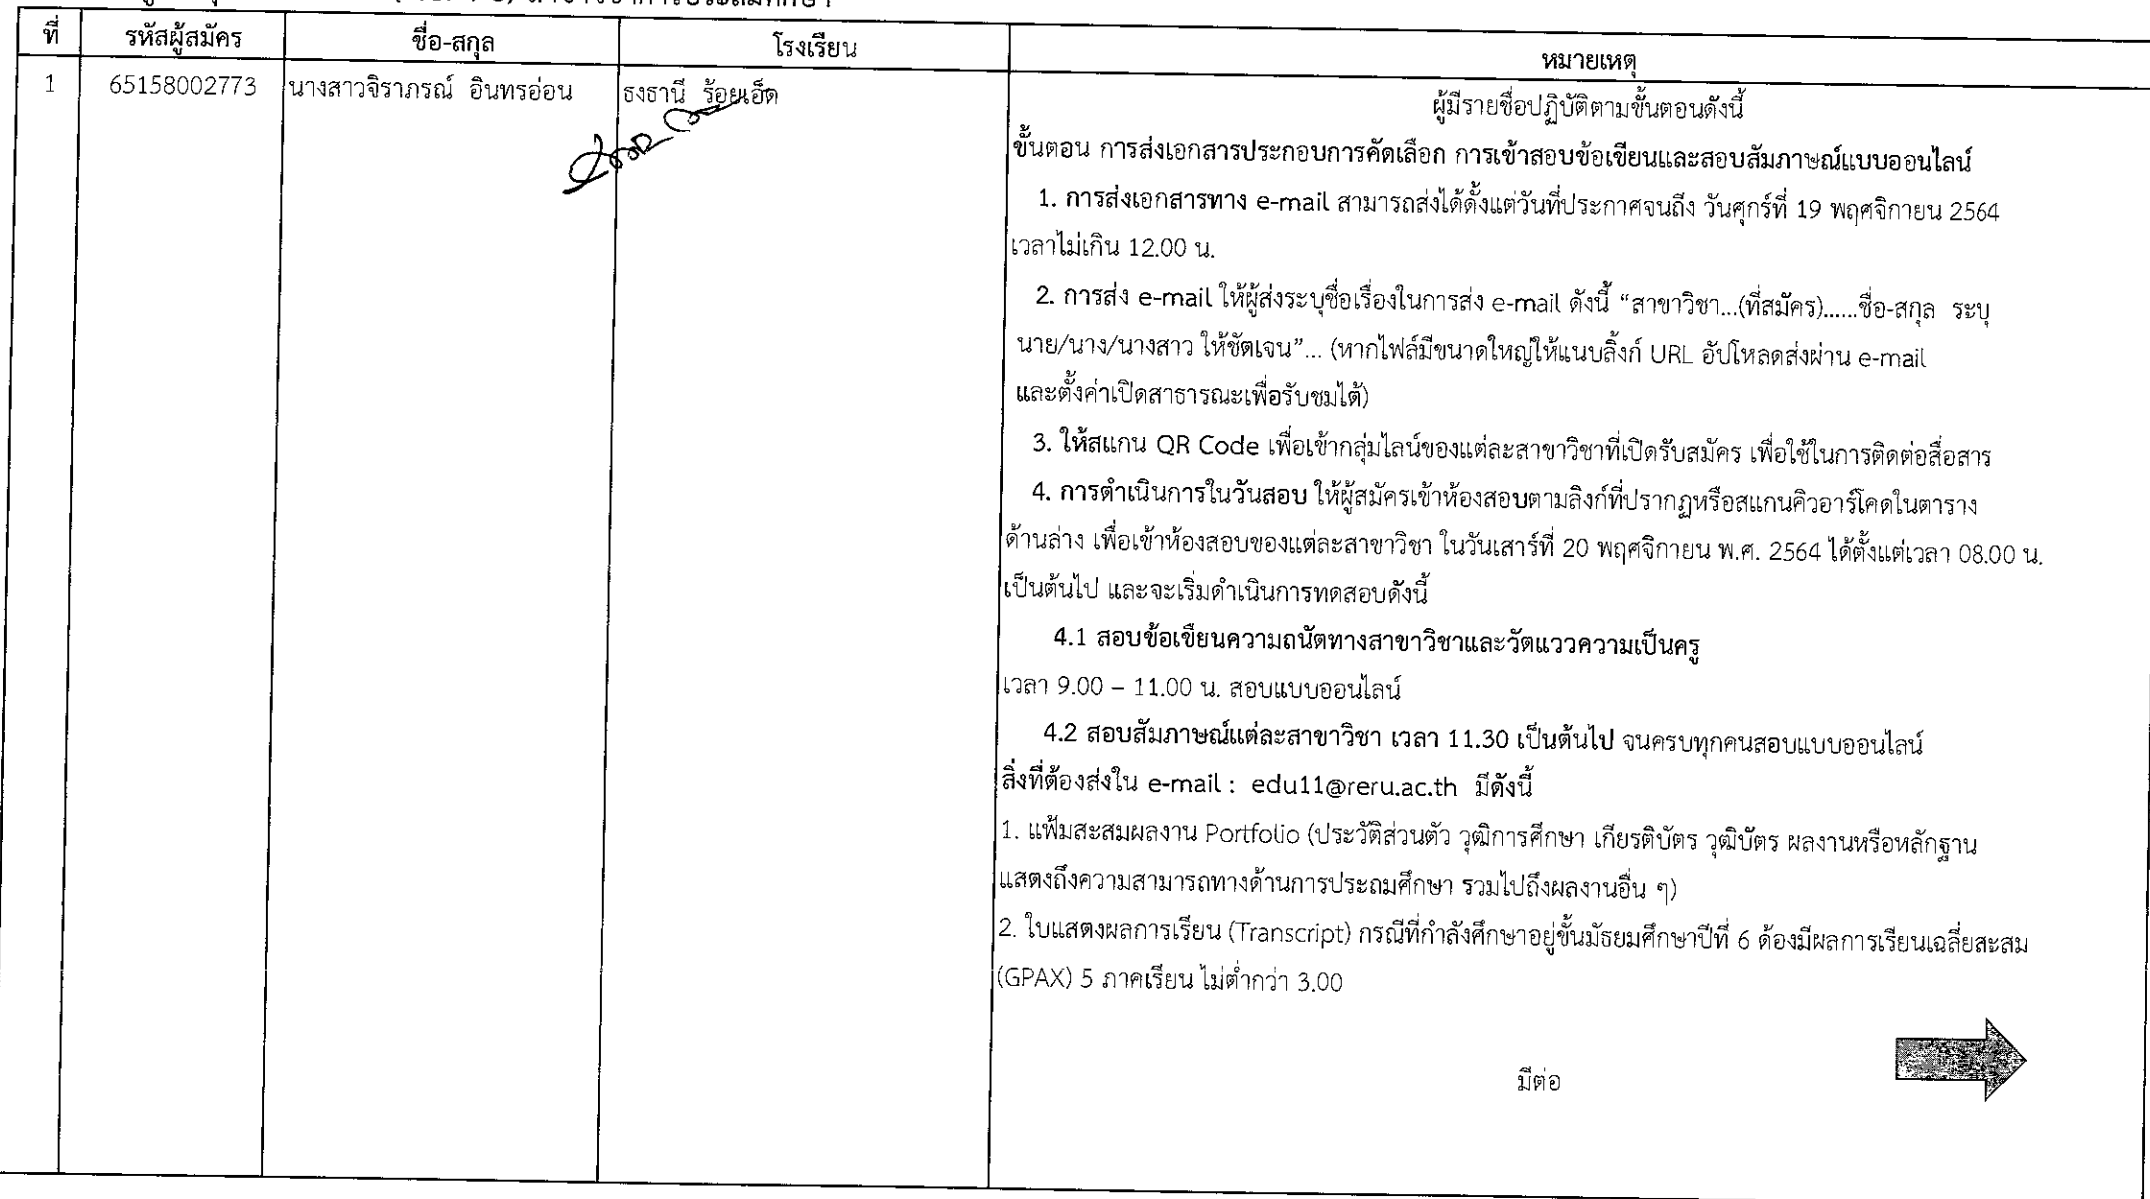 ที่ รหัสผู้สมัคร ชื่อ-สกุล โรงเรียน หมายเหตุ
1 65158002773 นางสาวจิราภรณ์ อินทรอ่อน ธงธานี ร้อยเอ็ด
ผู้มีรายชื่อปฏิบัติตามขั้นตอนดังนี้
ขั้นตอน การส่งเอกสารประกอบการคัดเลือก การเข้าสอบข้อเขียนและสอบสัมภาษณ์แบบออนไลน์
1. การส่งเอกสารทาง e-mail สามารถส่งได้ตั้งแต่วันที่ประกาศจนถึง วันศุกร์ที่ 19 พฤศจิกายน 2564
เวลาไม่เกิน 12.00 น.
2. การส่ง e-mail ให้ผู้ส่งระบุชื่อเรื่องในการส่ง e-mail ดังนี้ “สาขาวิชา...(ที่สมัคร)......ชื่อ-สกุล ระบุ
นาย/นาง/นางสาว ให้ชัดเจน”... (หากไฟล์มีขนาดใหญ่ให้แนบลิ้งก์ URL อัปโหลดส่งผ่าน e-mail
และตั้งค่าเปิดสาธารณะเพื่อรับชมได้)
3. ให้สแกน QR Code เพื่อเข้ากลุ่มไลน์ของแต่ละสาขาวิชาที่เปิดรับสมัคร เพื่อใช้ในการติดต่อสื่อสาร
4. การดำเนินการในวันสอบ ให้ผู้สมัครเข้าห้องสอบตามลิงก์ที่ปรากฏหรือสแกนคิวอาร์โคดในตาราง
ด้านล่าง เพื่อเข้าห้องสอบของแต่ละสาขาวิชา ในวันเสาร์ที่ 20 พฤศจิกายน พ.ศ. 2564 ได้ตั้งแต่เวลา 08.00 น.
เป็นต้นไป และจะเริ่มดำเนินการทดสอบดังนี้
4.1 สอบข้อเขียนความถนัดทางสาขาวิชาและวัดแววความเป็นครู
เวลา 9.00 – 11.00 น. สอบแบบออนไลน์
4.2 สอบสัมภาษณ์แต่ละสาขาวิชา เวลา 11.30 เป็นต้นไป จนครบทุกคนสอบแบบออนไลน์
สิ่งที่ต้องส่งใน e-mail : edu11@reru.ac.th มีดังนี้
1. แฟ้มสะสมผลงาน Portfolio (ประวัติส่วนตัว วุฒิการศึกษา เกียรติบัตร วุฒิบัตร ผลงานหรือหลักฐาน
แสดงถึงความสามารถทางด้านการประถมศึกษา รวมไปถึงผลงานอื่น ๆ)
2. ใบแสดงผลการเรียน (Transcript) กรณีที่กำลังศึกษาอยู่ชั้นมัธยมศึกษาปีที่ 6 ต้องมีผลการเรียนเฉลี่ยสะสม
(GPAX) 5 ภาคเรียน ไม่ต่ำกว่า 3.00
มีต่อ